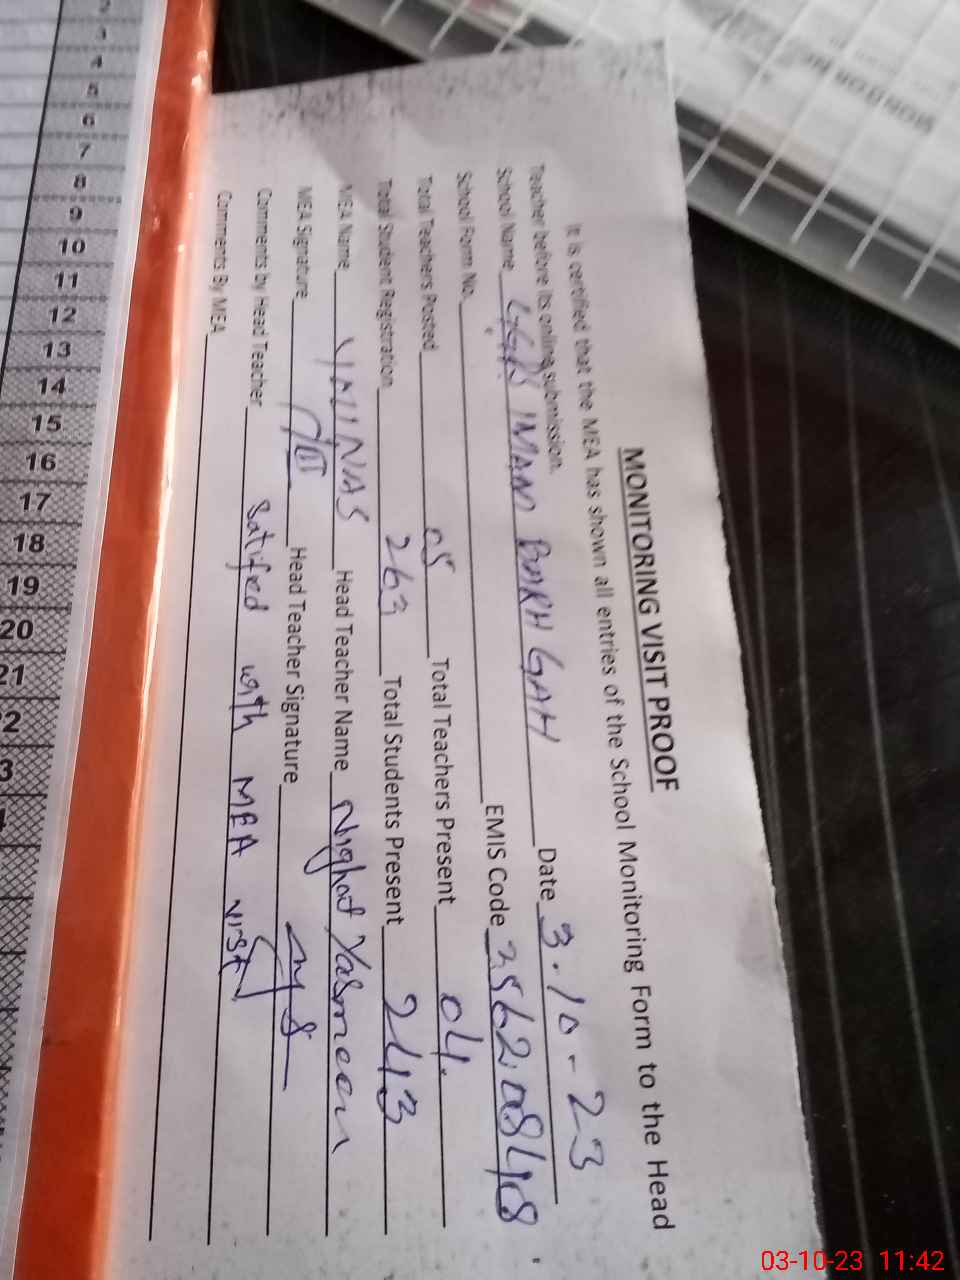 MONITORING VISIT PROOF
It is certified that the MEA has shown all entries of the School Monitoring Form to the Head
Teacher before its online submission.
School Name IMAM BARH GAH Date 3.10-23
School Form No. EMIS Code 35620848
Total Teachers Posted 05 Total Teachers Present 04.
Total Student Registration 263 Total Students Present 243
MEA Name Head Teacher Name Nighat Yasmeen
MEA Signature Head Teacher Signature
Comments by Head Teacher Satifed with MEA visit
Comments By MEA
2
3
4
5
6
7
8
9
10
11
12
13
14
15
16
17
18
19
20
21
03-10-23 11:42